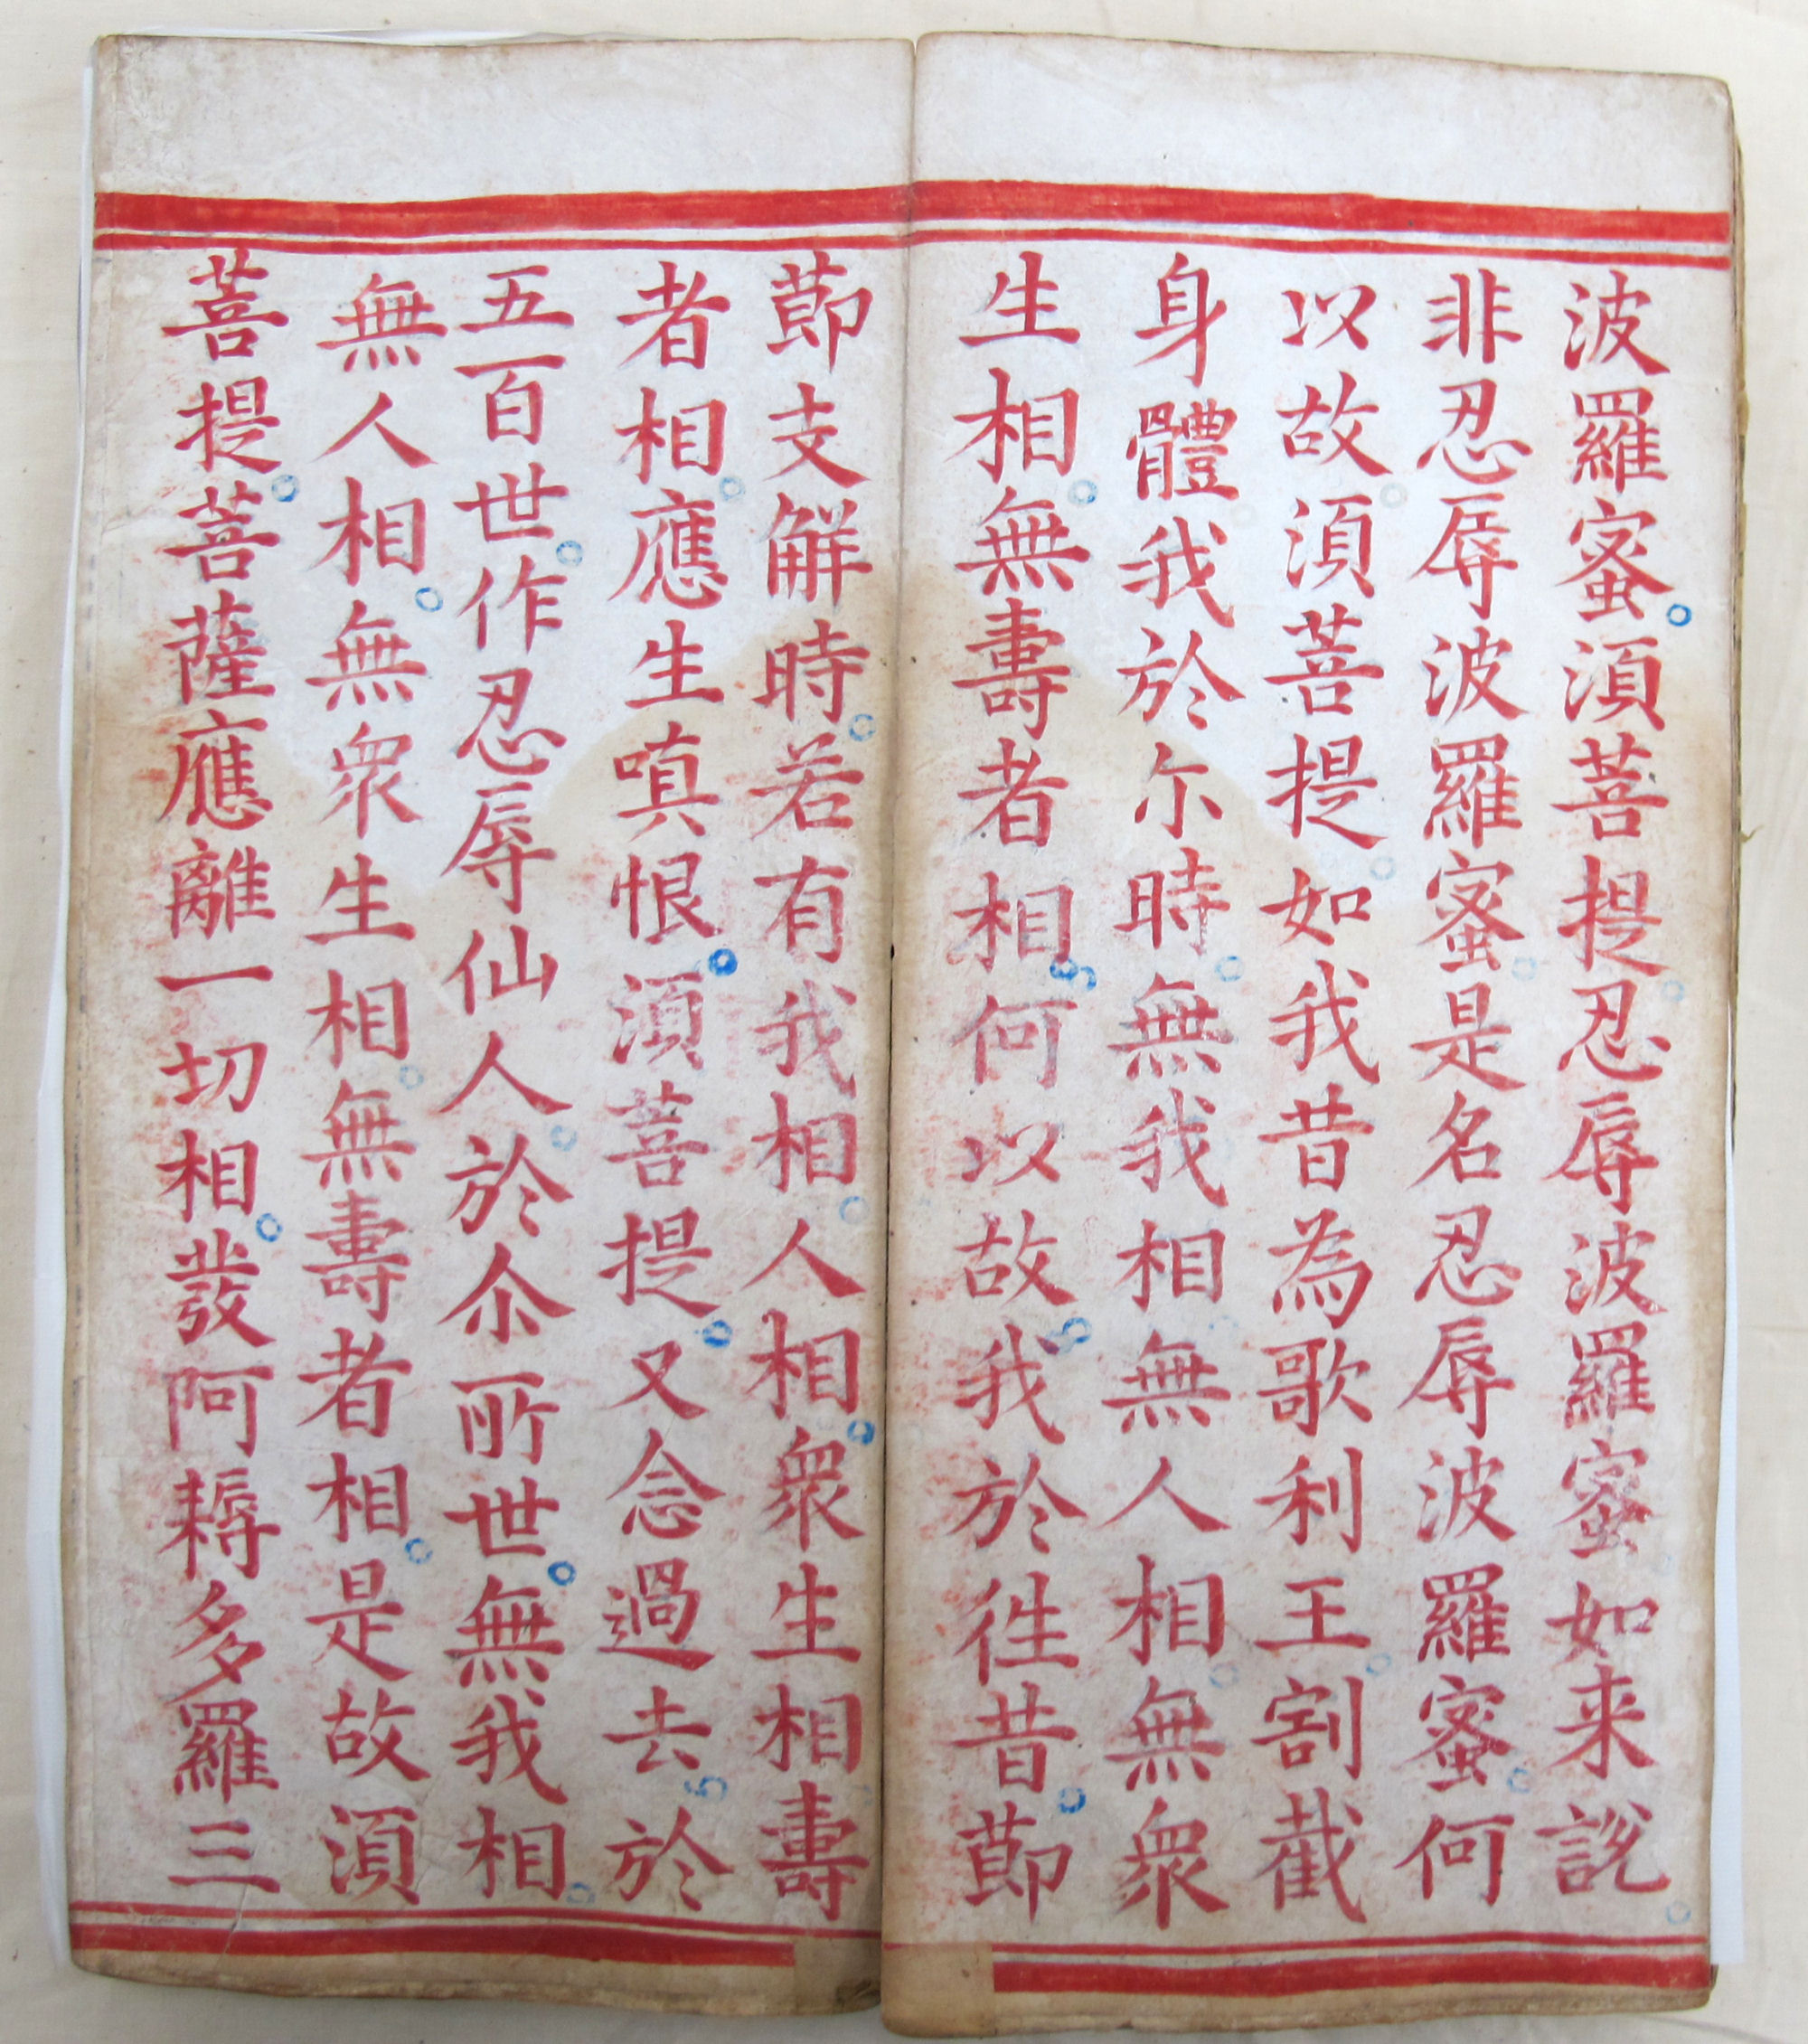 波羅蜜湏菩提忍辱波羅蜜如来說
非忍辱波羅蜜是名忍辱波羅蜜何
以故湏菩提如我昔為歌利王割截
身體我於尓時無我相無人相無衆
生相無壽者相何以故我於徃昔莭
莭支觧時若有我相人相衆生相壽
者相應生嗔恨湏菩提又念過去於
五百世作忍辱仙人於尒所世無我相
無人相無衆生相無壽者相是故湏
菩提菩薩應離一切相發阿耨多羅三